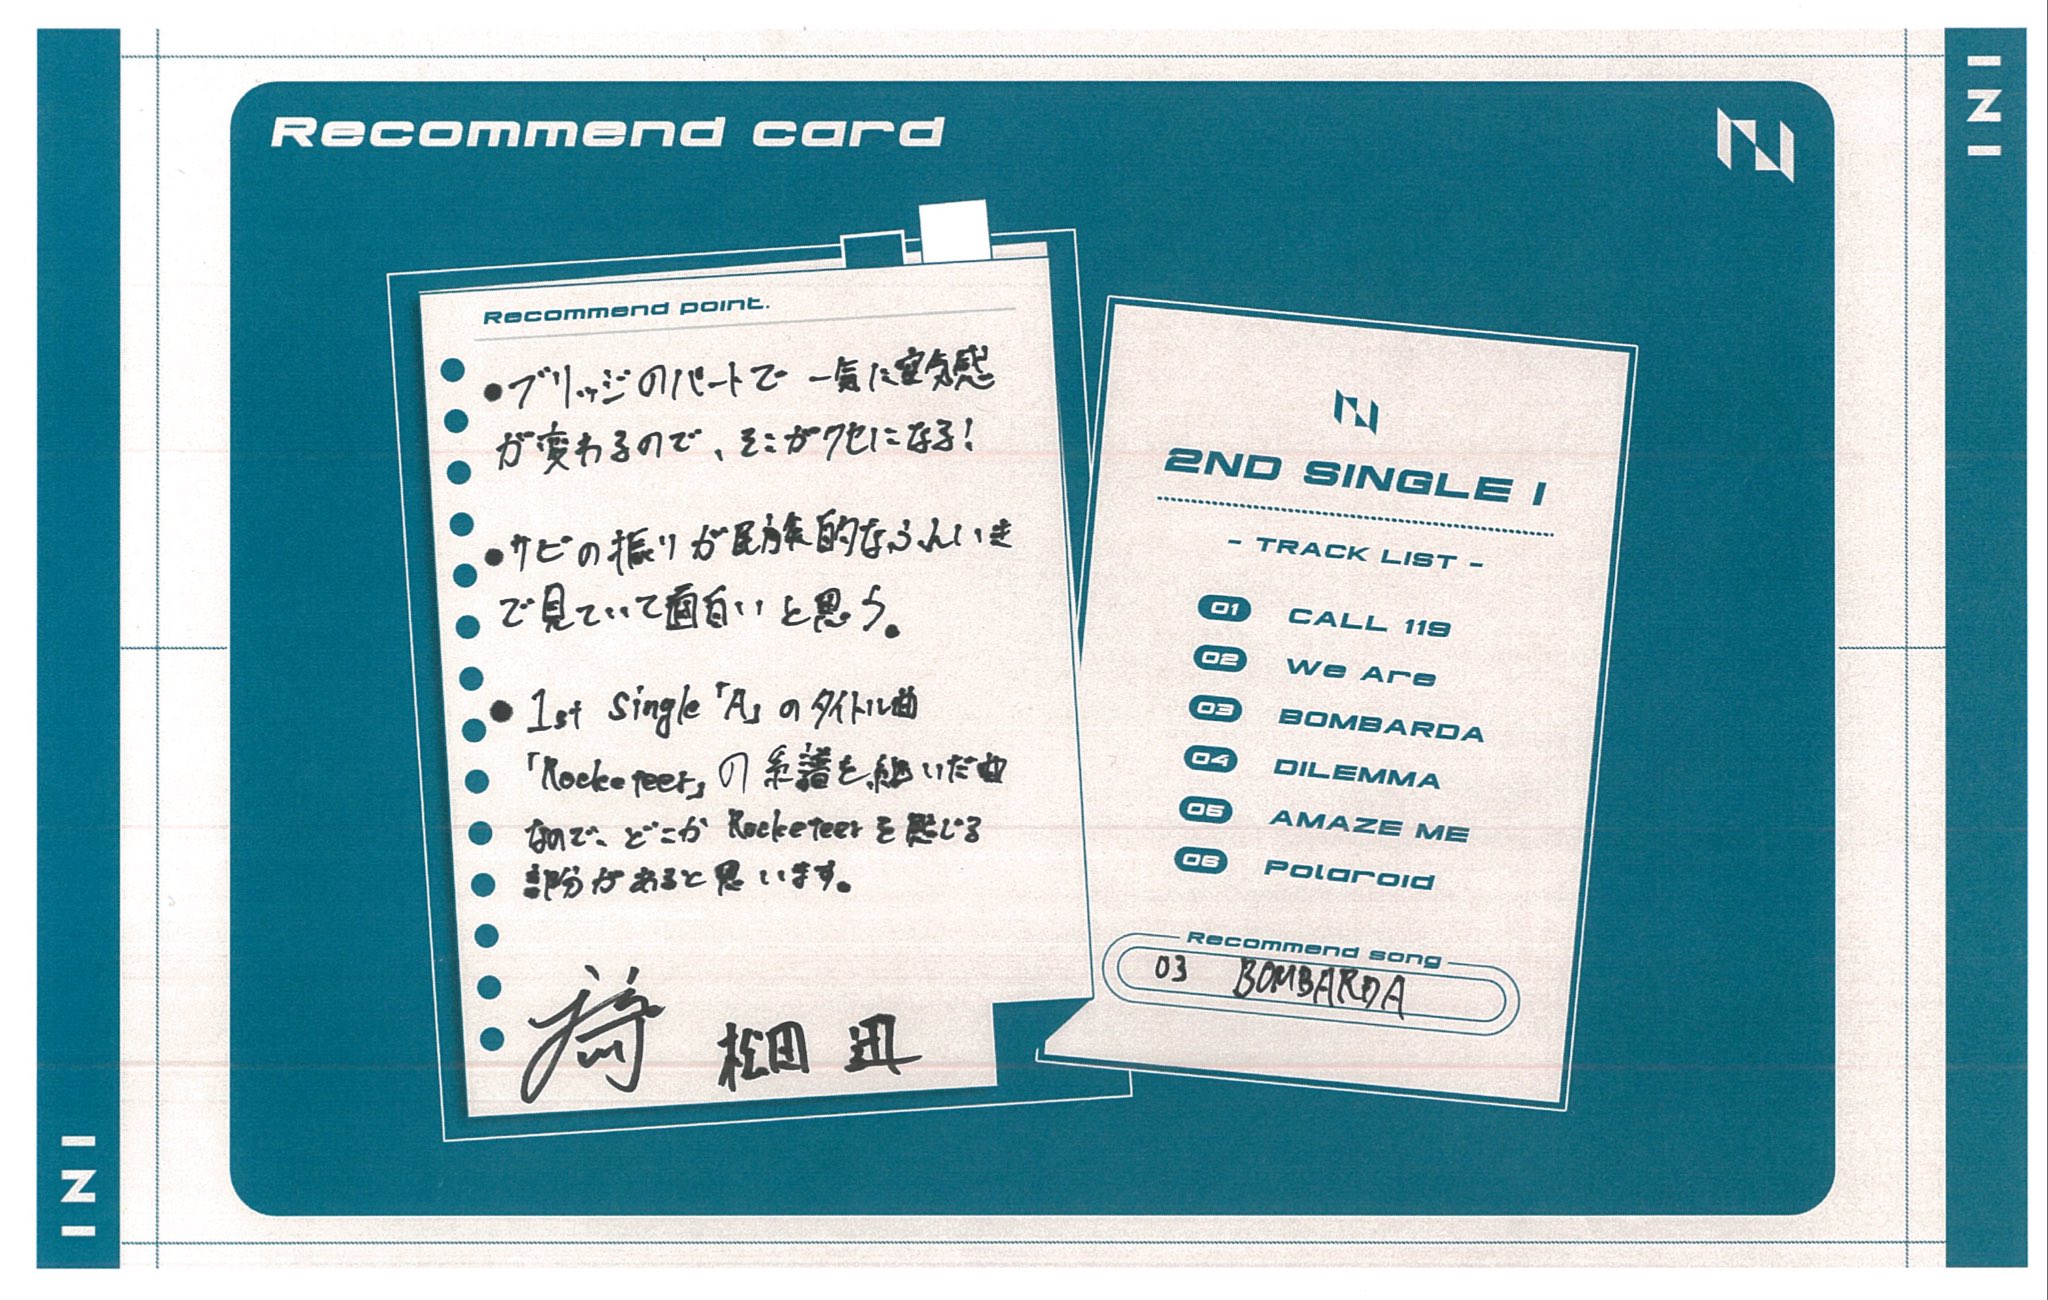 INI
INI
Recommend card
Recommend point.
●ブリッジのパートで一気に空気感
が変わるので、そこがクセになる!
●サビの振りが民族的なふんいき
で見ていて面白いと思う。
●1st Single「A」のタイトル曲
「Rocketeer」の系譜を継いだ曲
なので、どこかRocketeerを感じる
部分があると思います。
松田 迅
2ND SINGLE I
- TRACK LIST -
01 CALL 119
02 We Are
03 BOMBARDA
04 DILEMMA
05 AMAZE ME
06 Polaroid
Recommend song
03 BOMBARDA